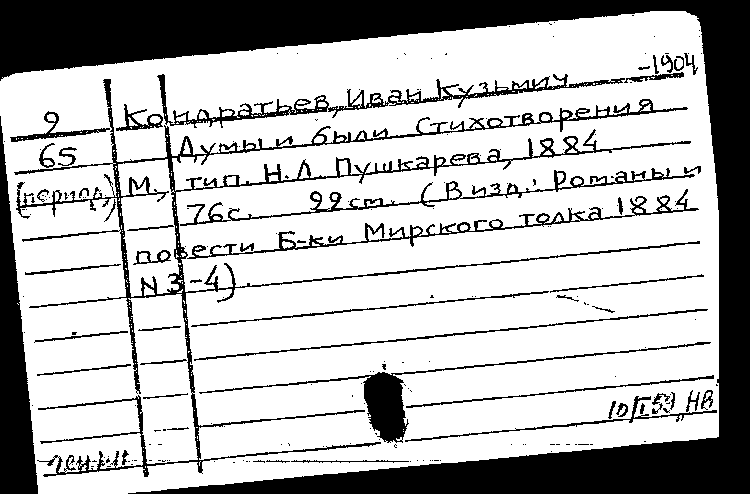 -1904
9 Кондратьев, Иван Кузьмич
65 Думы и были Стихотворения
(период.) М., тип. Н.Л. Пушкарева, 1884
76с. 22 см. (В изд.: Романы и
повести Б-ки Мирского толка 1884
N 3-4).
10/I 59 НВ